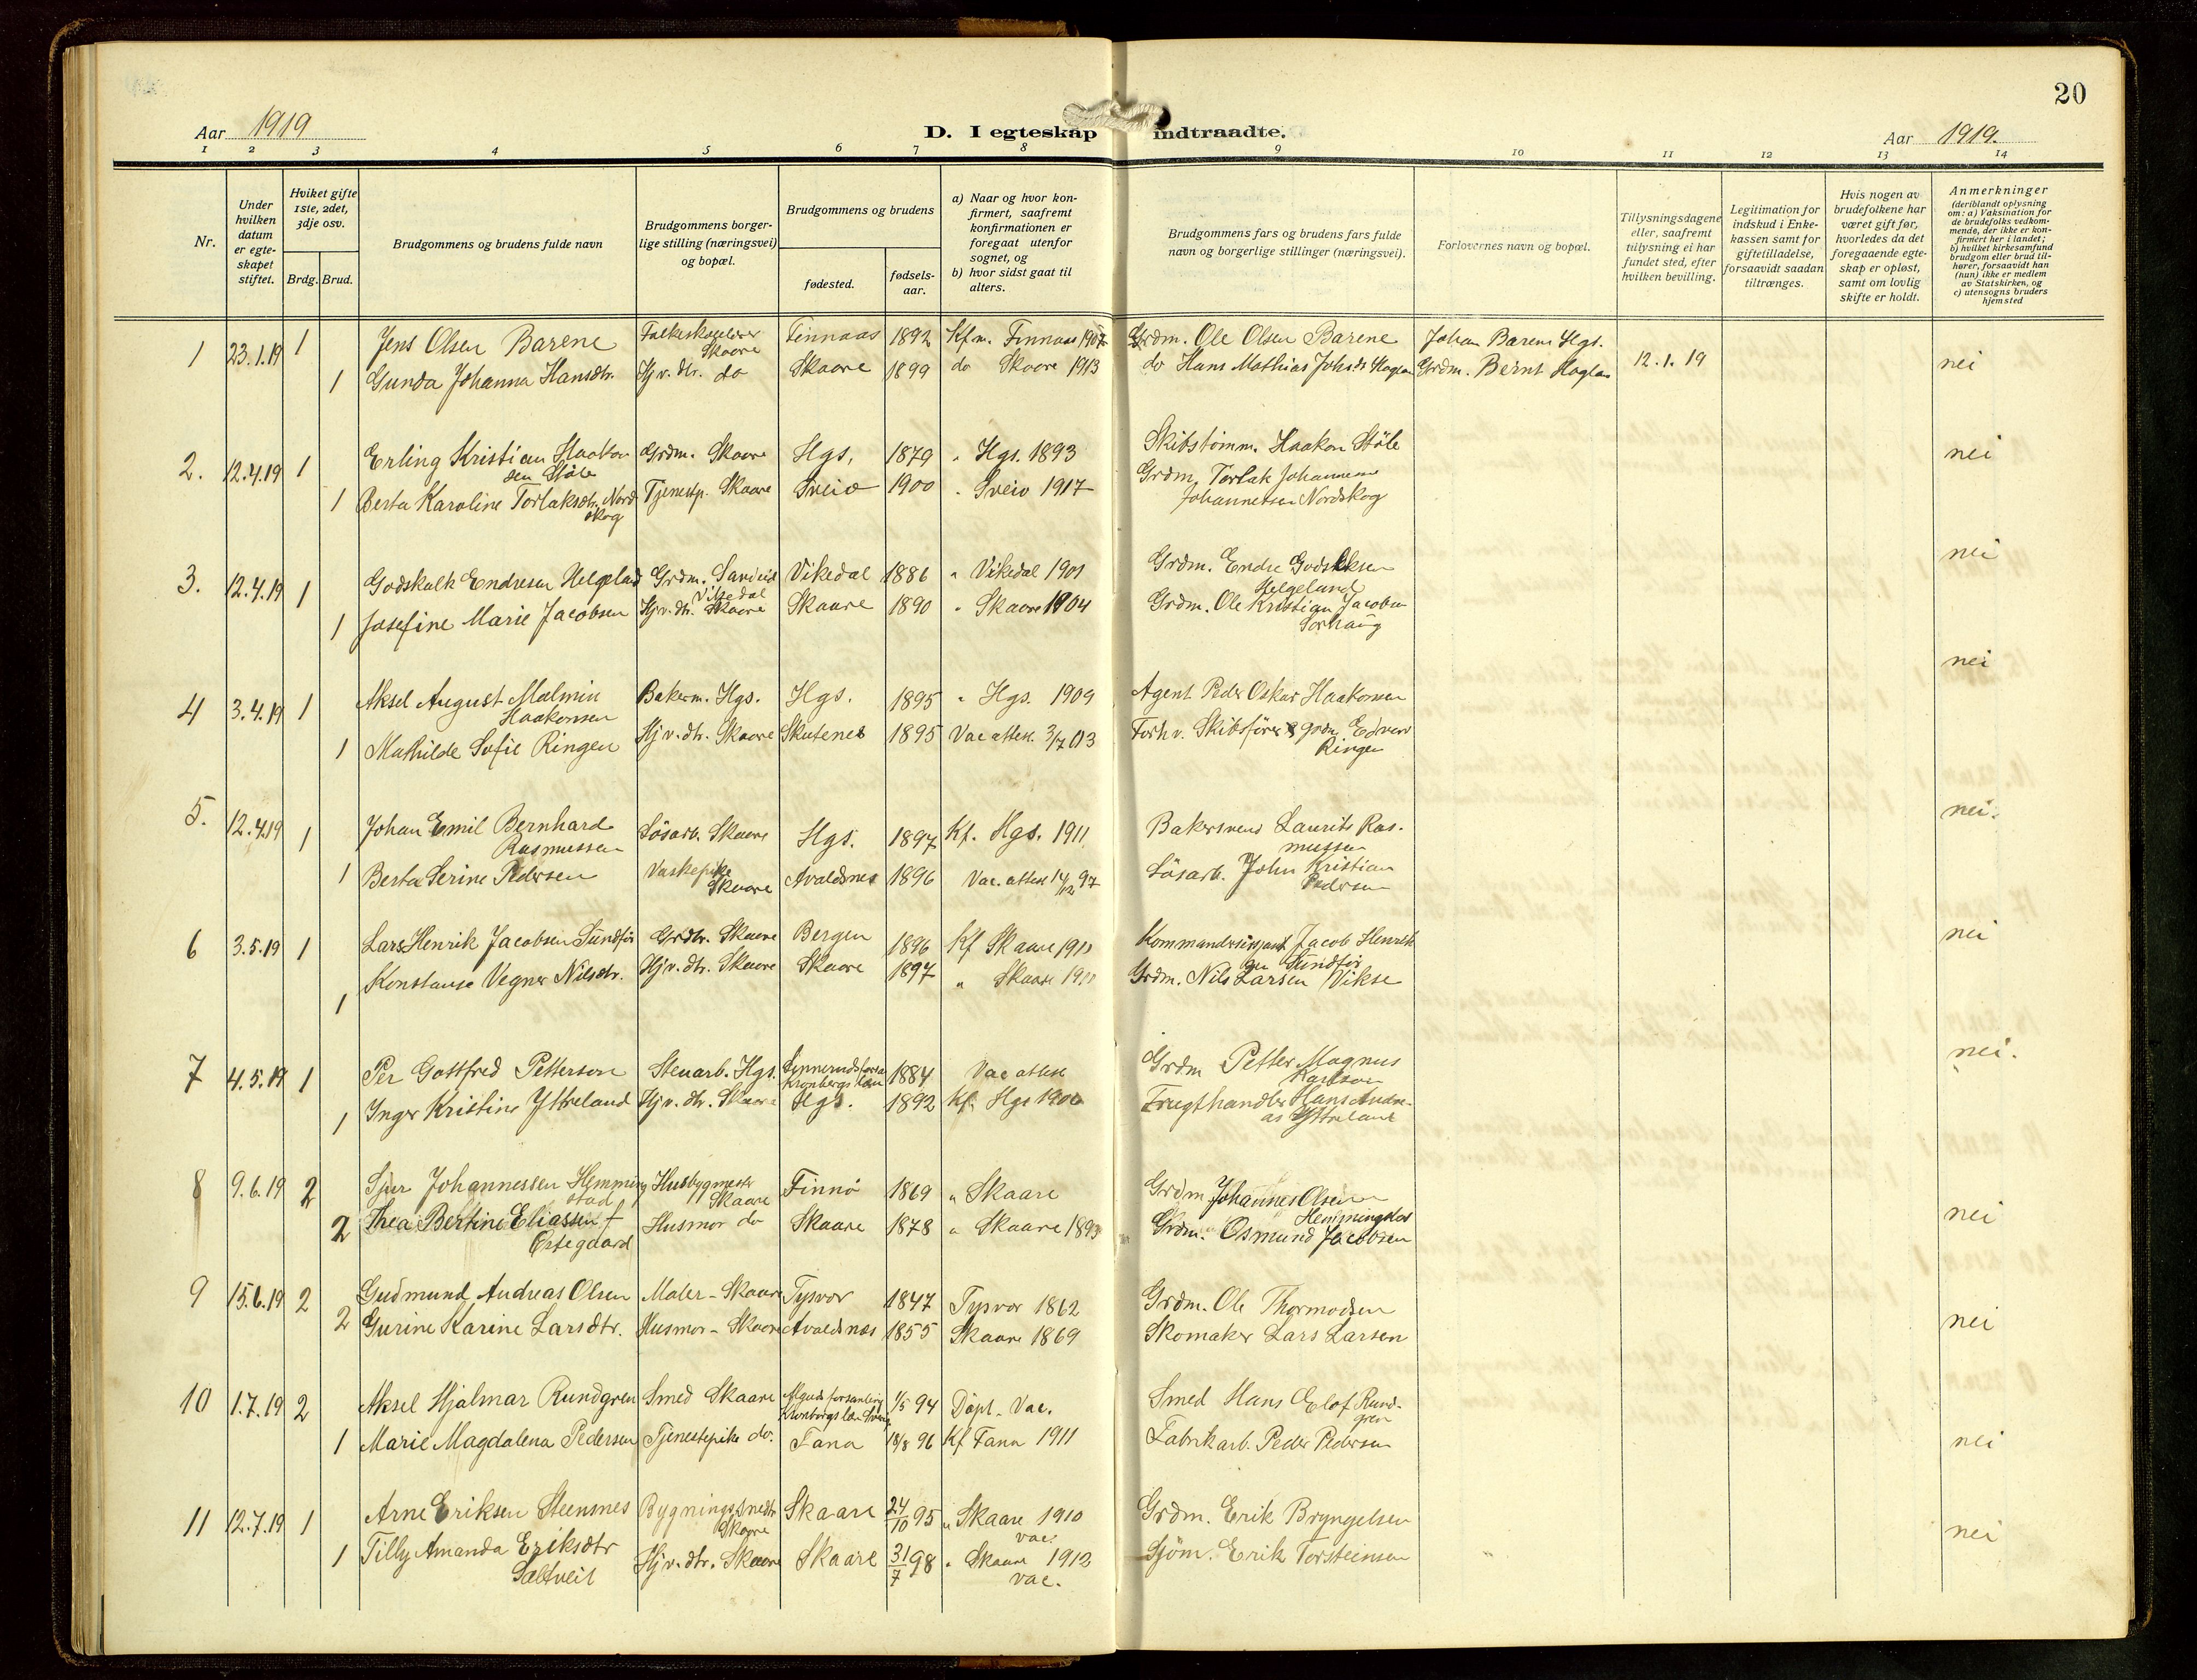 20
Aar 1919
D. I egteskap indtraadte.
Aar 1919.
1 2 3 4 5 6 7 8 9 10 11 12 13 14
Nr.
Under hvilken datum er egte- skapet stiftet.
Hviket gifte 1ste, 2det, 3dje osv.
Brdg. Brud.
Brudgommens og brudens fulde navn
Brudgommens borger- lige stilling (næringsvei) og bopæl.
Brudgommens og brudens
fødested.
fødsels- aar.
a) Naar og hvor kon- firmert, saafremt konfirmationen er foregaat utenfor sognet, og
b) hvor sidst gaat til alters.
Brudgommens fars og brudens fars fulde navn og borgerlige stillinger (næringsvei).
Forlovernes navn og bopæl.
Tillysningsdagene eller, saafremt tillysning ei har fundet sted, efter hvilken bevilling.
Legitimation for indskud i Enke- kassen samt for giftetilladelse, forsaavidt saadan tiltrænges.
Hvis nogen av brudefolkene har været gift før, hvorledes da det foregaaende egte- skap er opløst, samt om lovlig skifte er holdt.
Anmerkninger (deriblandt oplysning om: a) Vaksination for de brudefolks vedkom- mende, der ikke er kon- firmert her i landet; b) hvilket kirkesamfund brudgom eller brud til- hører, forsaavidt han (hun) ikke er medlem av Statskirken, og c) utensogns bruders hjemsted
1 23.1.19 1 Jens Olsen Barene Skaare Finnaas 1892 Kfm. Finnaas 1907 Grdm. Ole Olsen Barene Johan Barene Hgs.
1 Gunda Johanna Hansdtr. Hjv. dtr. do Skaare 1899 do Skaare 1913 do Hans Mathias Grdm. Bernt 12.1.19 nei
2. 12.4.19 1 Erling Kristian Haakon Grdm. Skaare Hgs. 1879 " Hgs. 1893 Skibstømm. Haakon Støle nei
sen Støle
1 Berta Karoline Torlaksdtr. Nord Tjenestp. Skaare Sveio 1900 " Sveio 1917 Grdm. Torlak Johannem
skog Johannessen Nordskog
3. 12.4.19 1 Godskalk Endresen Helgeland Grdm. Sandeid Vikedal 1886 " Vikedal 1901 Grdm. Endre nei
Vikedal Helgeland
1 Josefine Marie Jacobsen Hjv. dtr. Skaare Skaare 1890 " Skaare 1904 Grdm. Ole Kristian Jacobsen
Sørhaug
4 3.4.19 1 Aksel August Malmin Bakerm. Hgs. Hgs. 1895 " Hgs. 1909 Agent Peder Oskar Haakonsen nei
Haakonsen
1 Mathilde Sofie Ringen Hjv. dtr. Skaare Skutenes 1895 Vac attest 3/7 Forhv. Skibsfører
Ringen
5. 12.4.19 1 Johan Emil Bernhard Løsarb. Skaare Hgs. 1897 Kf. Hgs. 1911 Bakersvend Laurits Ras- nei.
Rasmussen mussen
1 Berta Serine Pedersen Vaskepike Avaldsnes 1896 Vac. attest 14/12 97 Løsarb. John Kristian
Skaare Pedersen
6 3.5.19 1 Lars Henrik Jacobsen Sundfør Skaare Bergen 1896 Kf Skaare 1911 Jacob Henrik nei
Sundfør
1 Konstanse Vegner Nilsdtr. Hjv. dtr. Skaare Skaare 1897 " Skaare 1911 Grdm. Nils Larsen Vikse
7 4.5.19 1 Per Gottfred Petterson Stenarb. Hgs. Kronbergs læn 1884 Vac attest Grdm Petter Magnus nei.
Karlson
1 Inger Kristine Ytreland Hjv. dtr. Skaare Hgs. 1892 Kf. Hgs Frugthandler Hans Andre-
as Ytreland
8 9.6.19 2 Sjur Johannessen Hemming Husbygmester Finnö 1869 " Skaare Grdm Johannes Olsen
stad Skaare Hemmingstad
2 Thea Bertine Eliassen f Husmor do Skaare 1878 " Skaare 1893 Grdm. Osmund Jacobsen nei
Østegaard
9 15.6.19 2 Gudmund Andreas Olsen Maler - Skaare Tysvær 1847 Tysvær 1862 Grdm. Ole Thormodsen
2 Gurine Karine Larsdtr. Husmor - Skaare Avaldsnes 1855 Skaare 1869 Skomaker Lars Larsen nei
10 1.7.19 2 Aksel Hjalmar Rundgren Smed Skaare 1/5 94 Døpt. Vac. Smed Hans Elof Rund-
gren
1 Marie Magdalena Pedersen Tjenestepike do. Fana 18/8 96 Kf Fana 1911 Fabrikarb. Peder Pedersen nei
11 12.7.19 1 Arne Eriksen Steensnes Skaare 24/10 95 " Skaare 1910 Grdm. Erik Bryngelsen
Skaare vac.
1 Tilly Amanda Eriksdtr Hjv. dtr. Skaare Skaare 31/7 98 " Skaare 1912 Sjöm. Erik Torsteinsen nei
Saltveit vac.